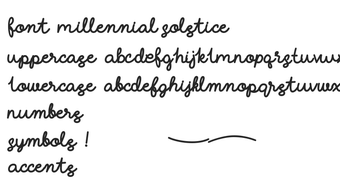 font millennial solstice
uppercase abcdefghijklmnopqrstuvwx
lowercase abcdefghijklmnopqrstuvwx
numbers
symbols !
accents